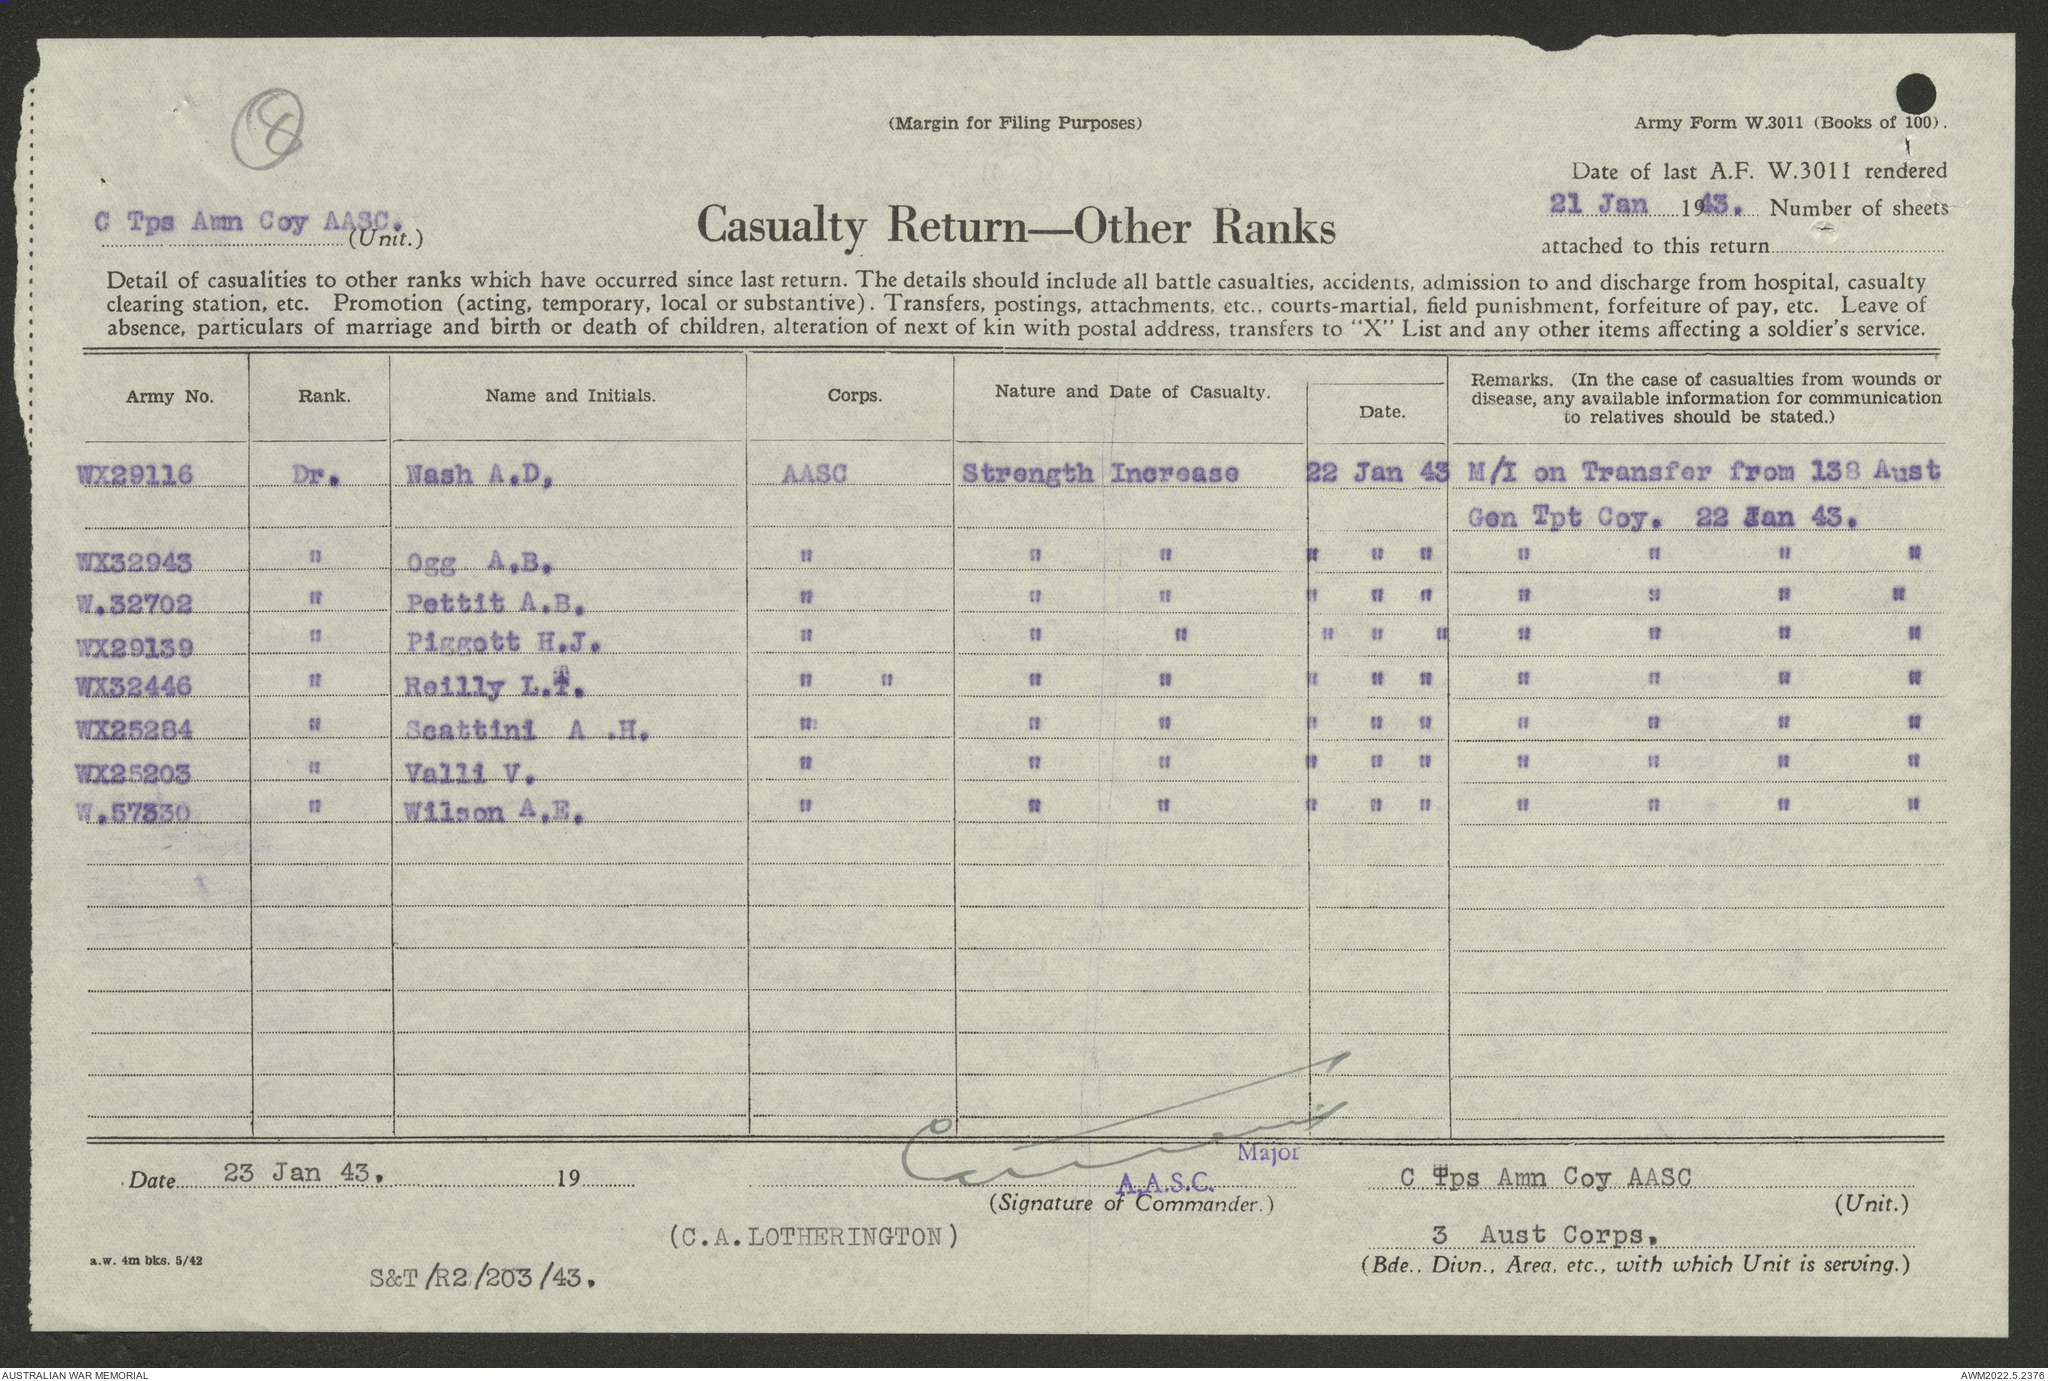 8
(Margin for Filing Purposes)
Army Form W.3011 (Books of 100).
Date of last A.F. W.3011 rendered
21 Jan 1943. Number of sheets
attached to this return
C Tps Amn Coy AASC.
(Unit.)
Casualty Return—Other Ranks
Detail of casualities to other ranks which have occurred since last return. The details should include all battle casualties, accidents, admission to and discharge from hospital, casualty
clearing station, etc. Promotion (acting, temporary, local or substantive). Transfers, postings, attachments, etc., courts-martial, field punishment, forfeiture of pay, etc. Leave of
absence, particulars of marriage and birth or death of children, alteration of next of kin with postal address, transfers to "X" List and any other items affecting a soldier's service.
Army No. Rank. Name and Initials. Corps. Nature and Date of Casualty. Date. Remarks. (In the case of casualties from wounds or
disease, any available information for communication
to relatives should be stated.)
WX29116 Dr. Nash A.D, AASC Strength Increase 22 Jan 43 M/I on Transfer from 138 Aust
Gen Tpt Coy. 22 Jan 43.
WX32943 " Ogg A.B. " " " " " " " " " "
W.32702 " Pettit A.B. " " " " " " " " " "
WX29139 " Piggott H.J. " " " " " " " " " "
WX32446 " Reilly L.T. " " " " " " " " " " "
WX25284 " Scattini A .H. " " " " " " " " " "
WX25203 " Valli V. " " " " " " " " " "
W.57330 " Wilson A.E. " " " " " " " " " "
Date 23 Jan 43. 19
Major
A.A.S.C.
(Signature of Commander.)
C Tps Amn Coy AASC
(Unit.)
(C.A.LOTHERINGTON)
3 Aust Corps.
(Bde., Divn., Area, etc., with which Unit is serving.)
a.w. 4m bks. 5/42
S&T/R2/203/43.
AUSTRALIAN WAR MEMORIAL
AWM2022.5.2376